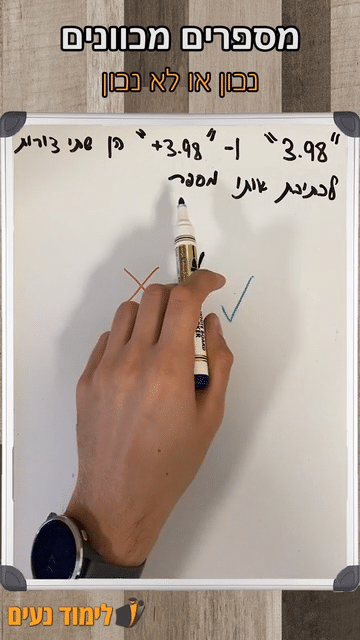 מספרים מכוונים
נכון או לא נכון
"3.98" ו- "3.98+" הן שתי צורות
לכתיבת אותו מספר
לימוד נעים